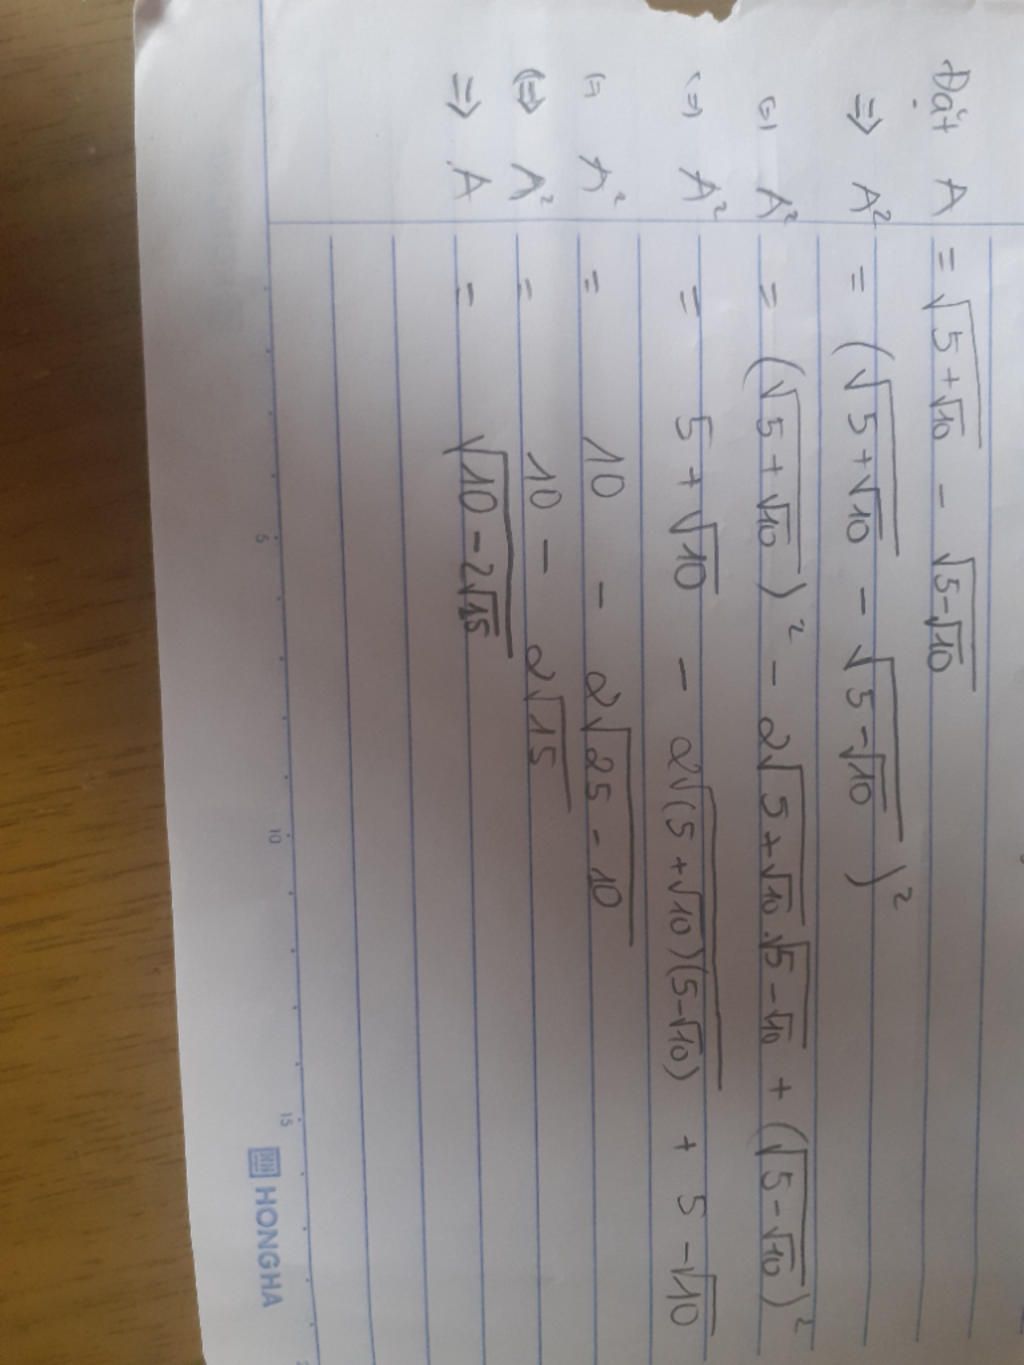 Đặt A = √(5+√10) - √(5-√10)
=> A² = (√(5+√10) - √(5-√10))²
(=) A² = (√(5+√10))² - 2√(5+√10).√(5-√10) + (√(5-√10))²
(=) A² = 5+√10 - 2√((5+√10)(5-√10)) + 5-√10
(= A² = 10 - 2√(25-10)
(=) A² = 10 - 2√15
=> A = √(10-2√15)
5
10
15
HONGHA